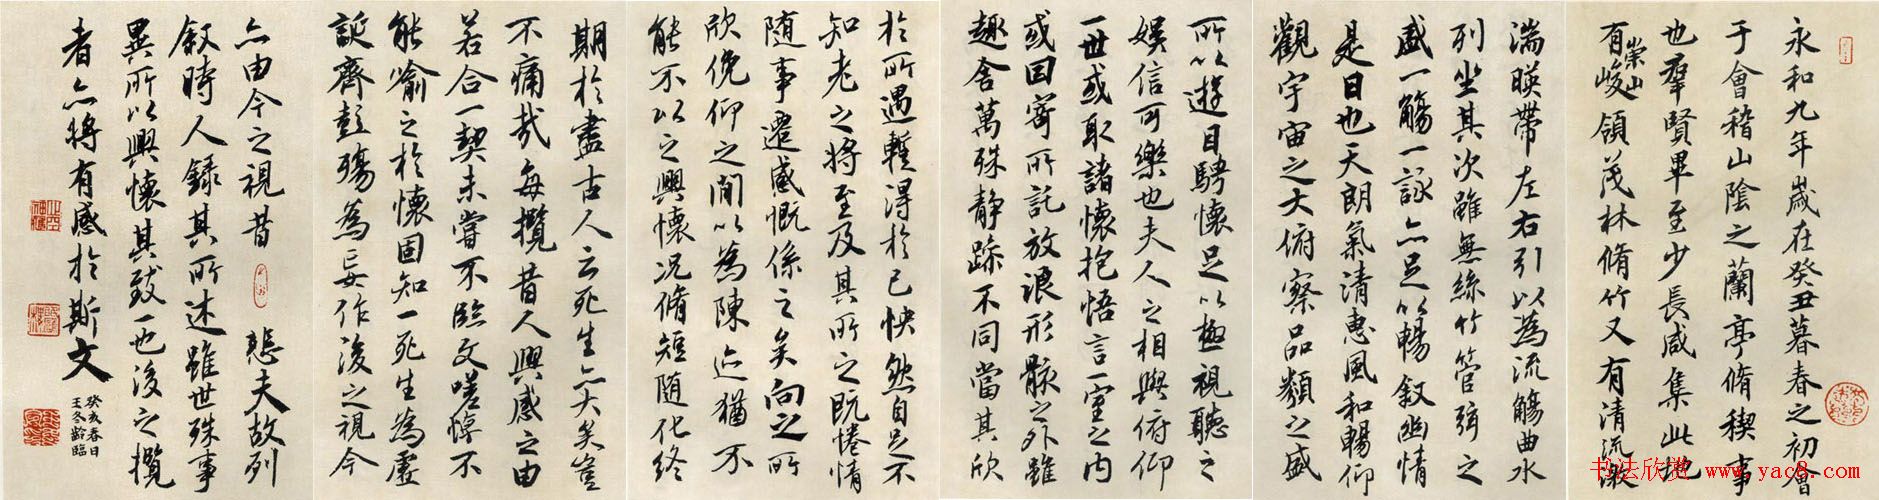 永和九年歲在癸丑暮春之初會
于會稽山陰之蘭亭脩稧事
也羣賢畢至少長咸集此地
有崇山峻領茂林脩竹又有清流激
湍暎帶左右引以為流觴曲水
列坐其次雖無絲竹管弦之
盛一觴一詠亦足以暢敘幽情
是日也天朗氣清惠風和暢仰
觀宇宙之大俯察品類之盛
所以遊目騁懷足以極視聽之
娛信可樂也夫人之相與俯仰
一世或取諸懷抱悟言一室之內
或因寄所託放浪形骸之外雖
趣舍萬殊靜躁不同當其欣
於所遇暫得於己怏然自足不
知老之將至及其所之既惓情
隨事遷感慨係之矣向之所
欣俛仰之閒以為陳迹猶不
能不以之興懷況脩短隨化終
期於盡古人云死生亦大矣豈
不痛哉每攬昔人興感之由
若合一契未嘗不臨文嗟悼不
能喻之於懷固知一死生為虛
誕齊彭殤為妄作後之視今
亦由今之視昔 悲夫故列
敘時人錄其所述雖世殊事
異所以興懷其致一也後之攬
者亦將有感於斯文
癸亥春日
王冬齡臨
书法欣赏 www.yac8.com